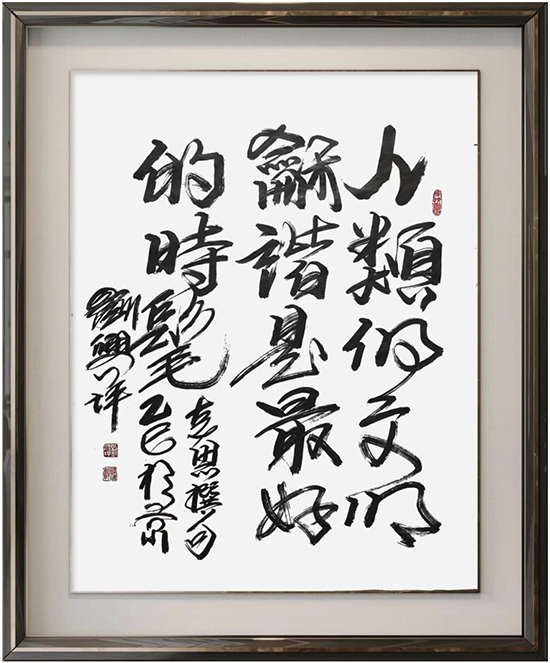 人類的文明
龢諧是最好
的時髦
思撰句
乙巳於京
劉興祥